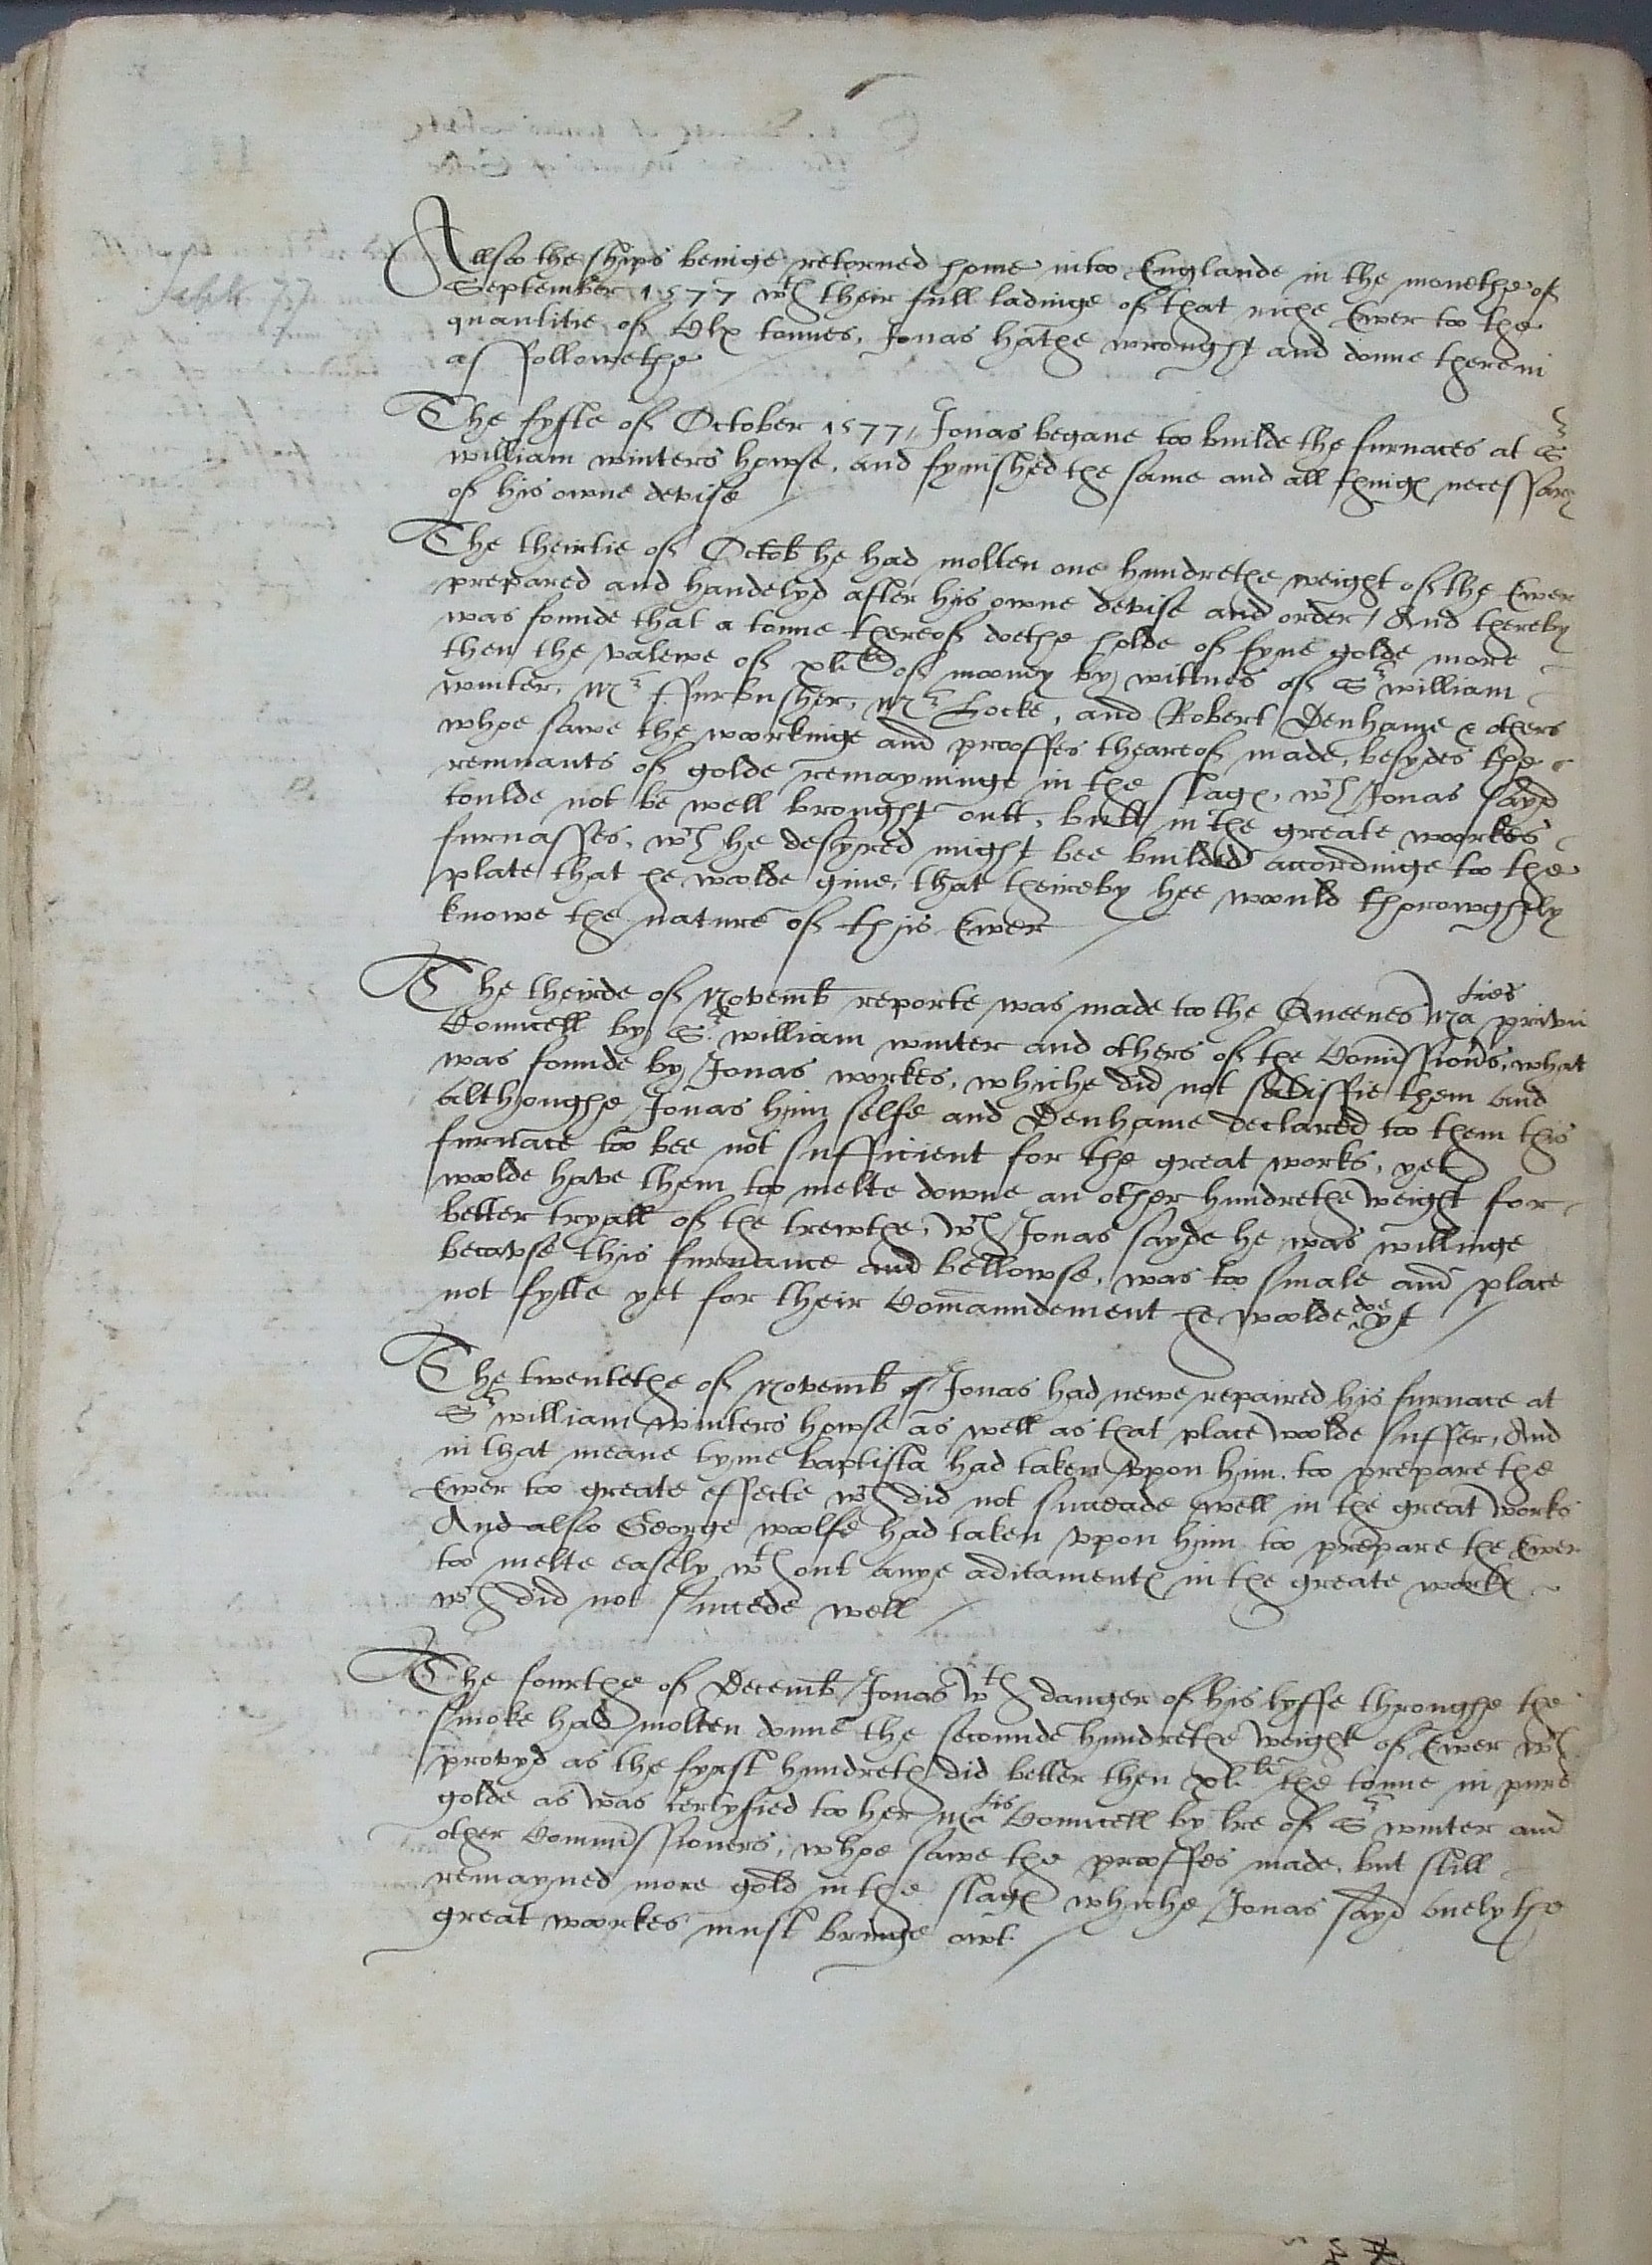 Sept 77
Allso the ships beinge retorned home intoo Englande in the monethe of
September 1577 wth their full ladinge of that riche Ewer too the
quantitie of Clx tonnes, Jonas hathe wrought and donne therein
as followethe
The fyfte of October 1577, Jonas begane too builde the furnaces at Sr
william winters howse, and fynished the same and all things necessary
of his owne devise
The theirtie of Octob he had molten one hundrethe weight of the Ewer
prepared and handelyd after his owne devise and order, And thereby
was founde that a tonne thereof doethe holde of fyne golde more
then the valewe of xl li of mooney by wittnes of Sr william
winter, Mr ffurbusher, Mr Locke, and Robert Denhame & others
whoe sawe the woorkinge and prooffes theareof made, besydes the
remnants of golde remayninge in the slags, wch Jonas sayd
coulde not be well brought outt, butt in the greate workes
furnasses, wch he desyred might bee builded accordinge too the
plate that he woolde give, that theireby hee would thorowghely
knowe the nature of this Ewer
The theirde of Novemb reporte was made too the Queenes Maties privii
Councell by Sr william winter and others of the Comissionrs, what
was founde by Jonas workes, whiche did not satisffie them And
Althoughe Jonas him selfe and Denhame declared too them this
furnace too bee not sufficient for the great works, yet
woolde have them too melte downe an other hundrethe weight for
better tryall of the trewthe, wch Jonas sayde he was willinge
becavse this furnance and bellowse, was too smale and place
not fytte yet for their Comaundement he woolde doe yt
The twentethe of Novemb Jonas had newe repaired his furnace at
Sr william winters howse as well as that place woolde suffer, And
in that meane tyme baptista had taken vpon him too prepare the
Ewer too greate effecte wch did not succeade well in the great works
And also George woolfe had taken vpon him too prepare the Ewer
too melte easely wthout anye aditaments in the greate works
wch did not succede well
The fourthe of Decemb Jonas wth danger of his lyffe throughe the
smoke had molten donne the seconde hundrethe weight of Ewer wch
provyd as the fyrst hundreth did better then xl li the tonne in pure
golde as was certyfied too her Matis Councell by lre of Sr winter and
other Commissioners, whoe sawe the prooffes made, but still
remayned more gold in the slags whiche Jonas sayd onely the
great woorkes must bringe owt.